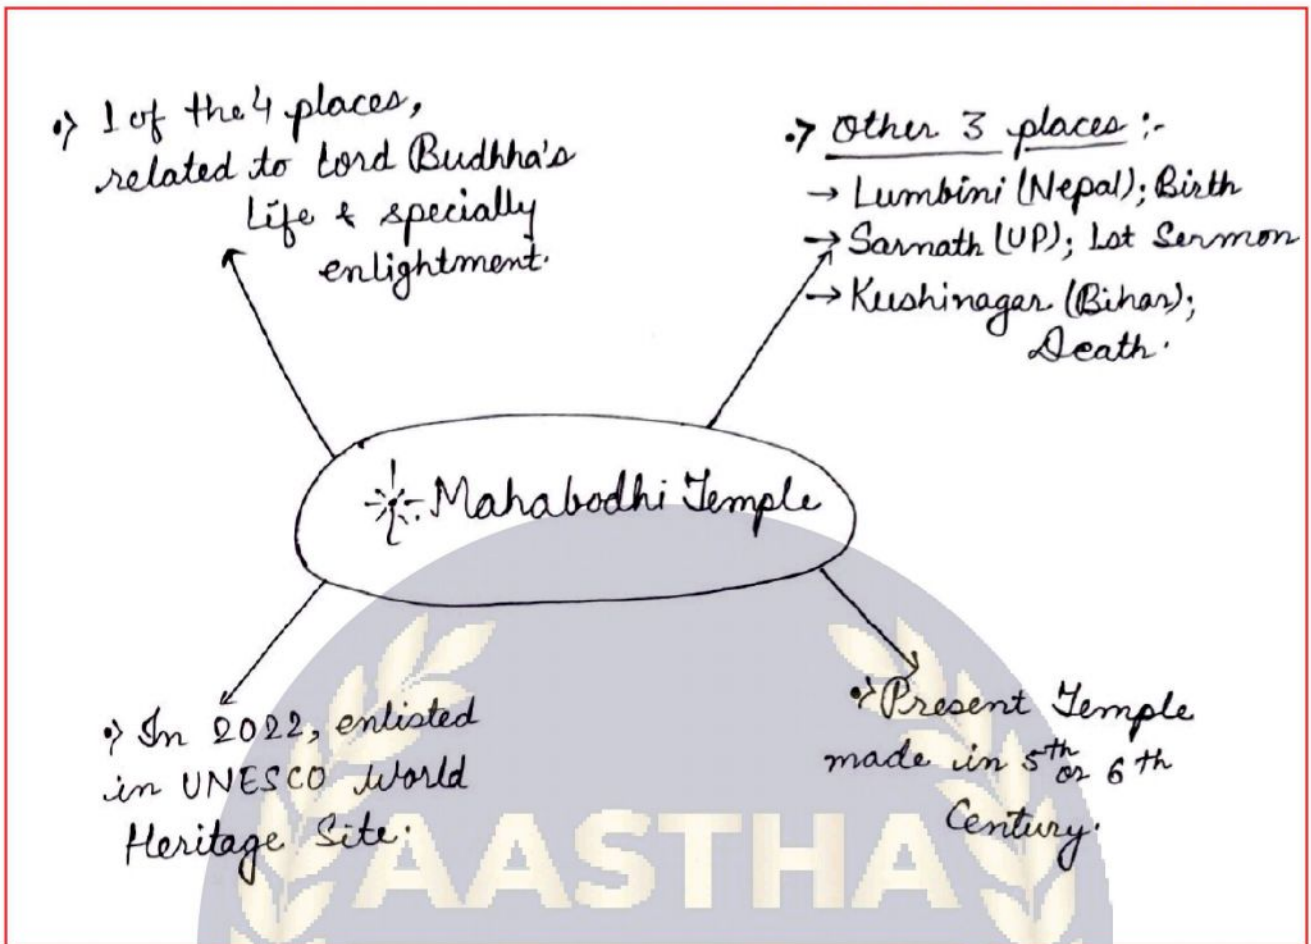 •> 1 of the 4 places,
related to Lord Budhha's
Life & specially
enlightment.
•> Other 3 places :-
→ Lumbini (Nepal); Birth
→ Sarnath (UP); 1st Sermon
→ Kushinagar (Bihar);
Death.
Mahabodhi Temple
•> In 2022, enlisted
in UNESCO World
Heritage Site.
•> Present Temple
made in 5th or 6th
Century.
AASTHA